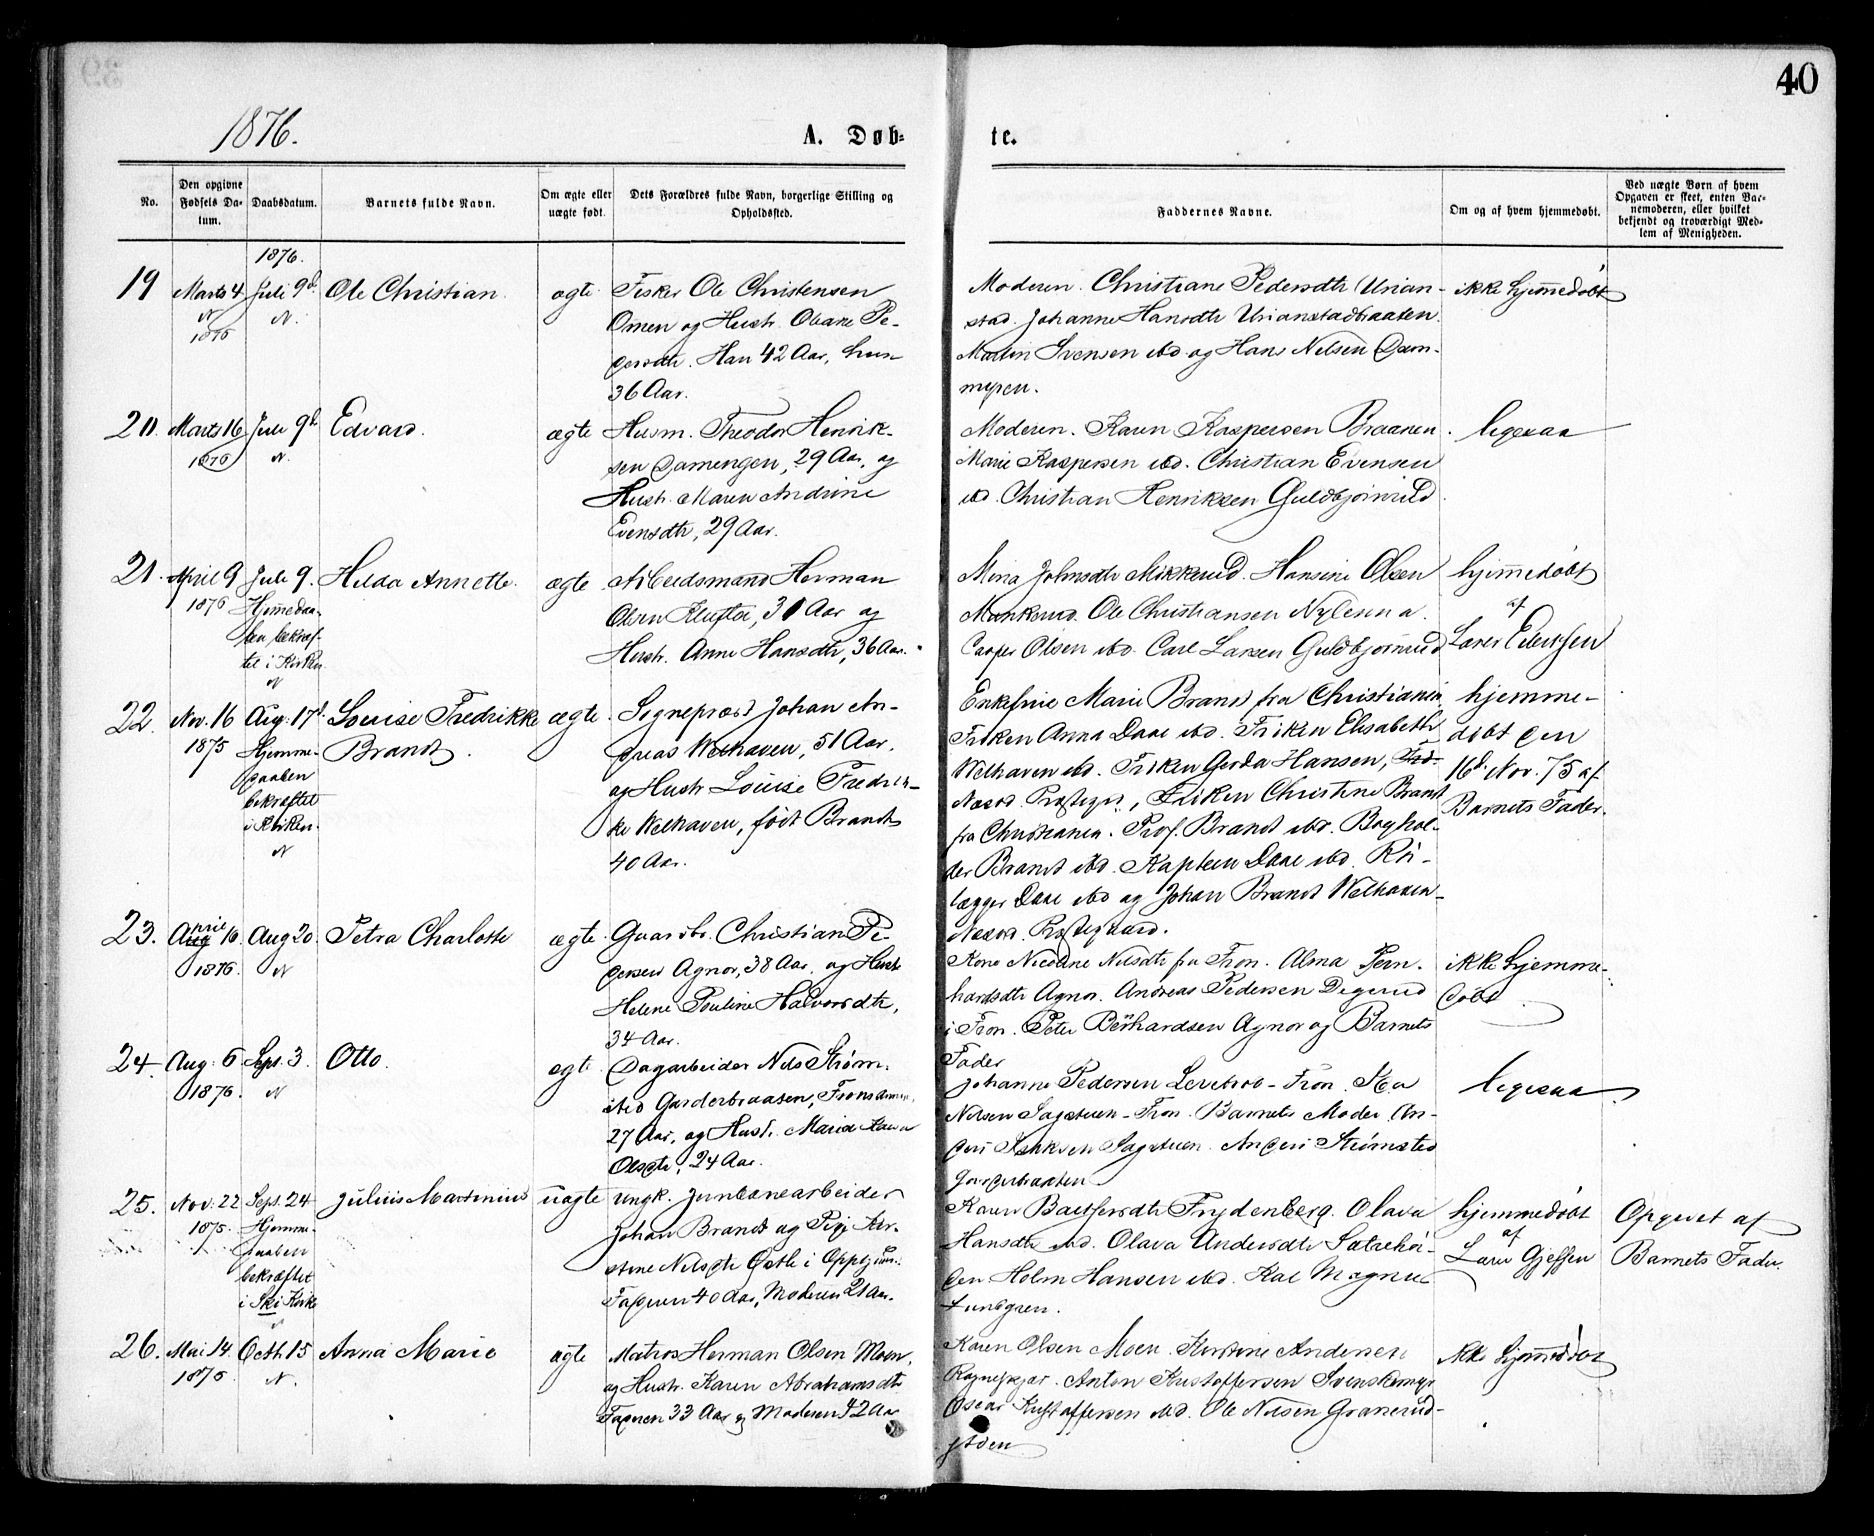 40
1876.
A. Døb-
te.
No.
Den opgivne Fødsels Da-tum.
Daabsdatum.
Barnets fulde Navn.
Om ægte eller uægte født.
Dets Forældres fulde Navn, borgerlige Stilling og Opholdsted.
Faddernes Navne.
Om og af hvem hjemmedøbt.
Ved uægte Børn af hvem Opgaven er skeet, enten Bar-nemoderen, eller hvilket bekjendt og troværdigt Med-lem af Menigheden.
1876.
19 Marts 4 Juli 9d. Ole Christian. ægte
N N.
1876
Fisker Ole Christensen
Omen og Hustr. Oleane Pe-
dersdtr. Han 42 Aar, hun
36 Aar.
Moderen. Christiane Pedersdtr Urian-
stad. Johanne Hansdtr Urianstadbraaten.
Martin Svensen ibd. og Hans Nilsen Dam-
myren.
ikke hjemmedøbt
20. Marts 16 Juli 9d. Edvard. ægte
1876 N.
Husm. Theodor Henrik-
sen Damengen, 29 Aar, og
Hustr. Maren Andrine
Evensdtr, 29 Aar.
Moderen. Karen Kaspersen Braanen.
Marie Kaspersen ibd. Christian Evensen
ibd. Christian Henriksen Guldbjørnrud.
ligesaa
21. April 9 Juli 9. Hilda Annette. ægte
1876 Hjemedaa-
ben bekræf-
tet i Kirken
N
Arbeidsmand Herman
Olsen Klufta, 31 Aar og
Hustr. Anne Hansdtr, 36 Aar.
Mina Johnsdtr Mikkerud. Hansine Olsen
Munkerud. Ole Christiansen
Casper Olsen ibd. Carl Larsen Guldbjørnrud
hjemmedøbt
af
Lars
22. Nov. 16 Aug. 17d. Louise Fredrikke ægte
1875 Hjemme-
Brandt.
daaben
bekræftet
i Kirken.
N
Sognepræst Johan An-
dreas Welhaven, 51 Aar,
og Hustr Louise Fredrik-
ke Welhaven, født Brandt
40 Aar.
Enkefrue Marie Brandt fra Christiania
Frøken Anna Daae ibd. Frøken Elisabeth
Welhaven ibd. Frøken Gerda Hansen,
Næsod. Præstegd., Frøken Christine Brandt
fra Christiania. Prof. Brandt ibd. Boghol-
der Brandt ibd. Kaptein Daae ibd.
Daae ibd og Johan Brandt Welhaven
Næsod. Præstegaard.
hjemme-
døbt den
16d. Nov. 75 af
Barnets Fader.
23. April 16. Aug 20. Petra Charlotte ægte
1876. N
Gaardbr. Christian Pe-
dersen Agnor, 38 Aar, og Hustr
Helene Pauline Halvorsdtr,
34 Aar.
Kone Nicoline Nilsdtr fra Fron. Alma Bern-
hardsdtr Agnor. Andreas Pedersen Degerud
i Fron. Peter Bernhardsen Agnor og Barnets
Fader
ikke hjemme-
døbt
24. Aug: 6 Sept. 3. Otto. ægte
1876. N
Dagarbeider Nils Strøm-
sted Garderbraaten,
27 Aar, og Hustr. Maria
Olsdtr, 24 Aar.
Johanne Pedersen Fron.
Nilsen Sagstuen - Fron. Barnets Moder. An-
ders Sagstuen. Anders Strømsted
Garderbraaten
ligesaa
25. Nov. 22 Sept. 24 Julius Martinius uægte
1875. Hjemme-
daaben
bekræftet
i Ski Kirke
Ungk. Jernbanearbeider
Johan Brandt og Pige Kir-
stine Nilsdtr Østli i Oppegaard.
Faderen 40 Aar, Moderen 21 Aar.
Karen Frydenberg. Olava
Hansdtr ibd. Olava Andersdtr
Holm Hansen ibd. Karl Magnus
Lundgren.
hjemmedøbt
af
Lars
Opgivet af
Barnets Fader.
26. Mai 14. Octb 15 Anna Marie ægte
1876. N.
Matros Herman Olsen Moen,
og Hustr. Karen Abrahamsdtr
Faderen 33 Aar og Moderen 42 Aar
Karen Olsen Moen. Kirstine Andersen
Anton Kristoffersen
Oscar Kristoffersen ibd. Ole Nilsen
ikke hjemmedøbt